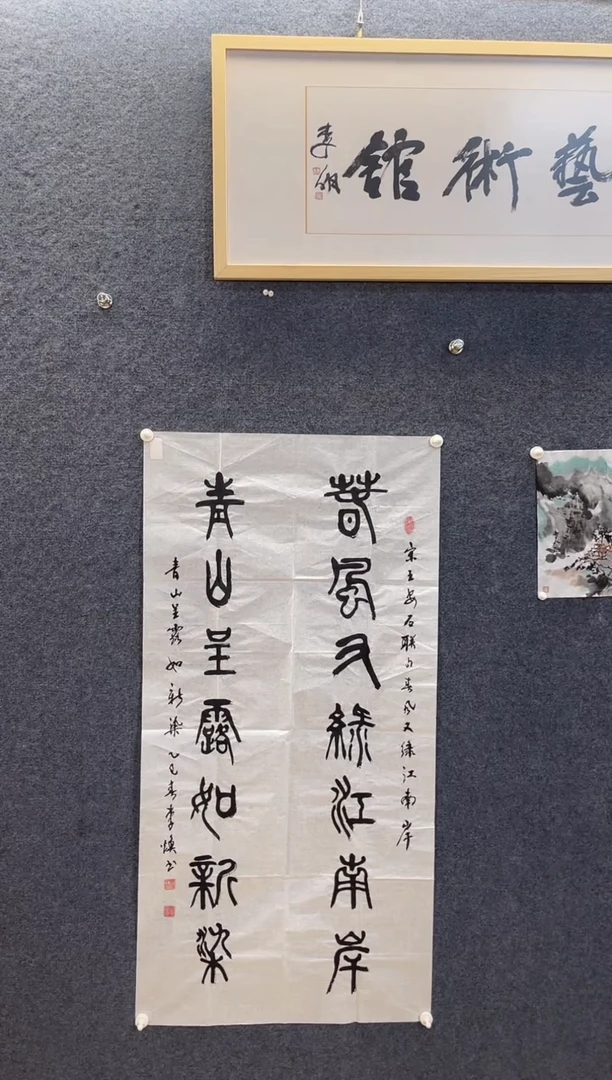 藝術館
春風又綠江南岸
宋王安石聯句春风又綠江南岸
青山呈露如新染
青山呈露如新染乙巳春李焕书